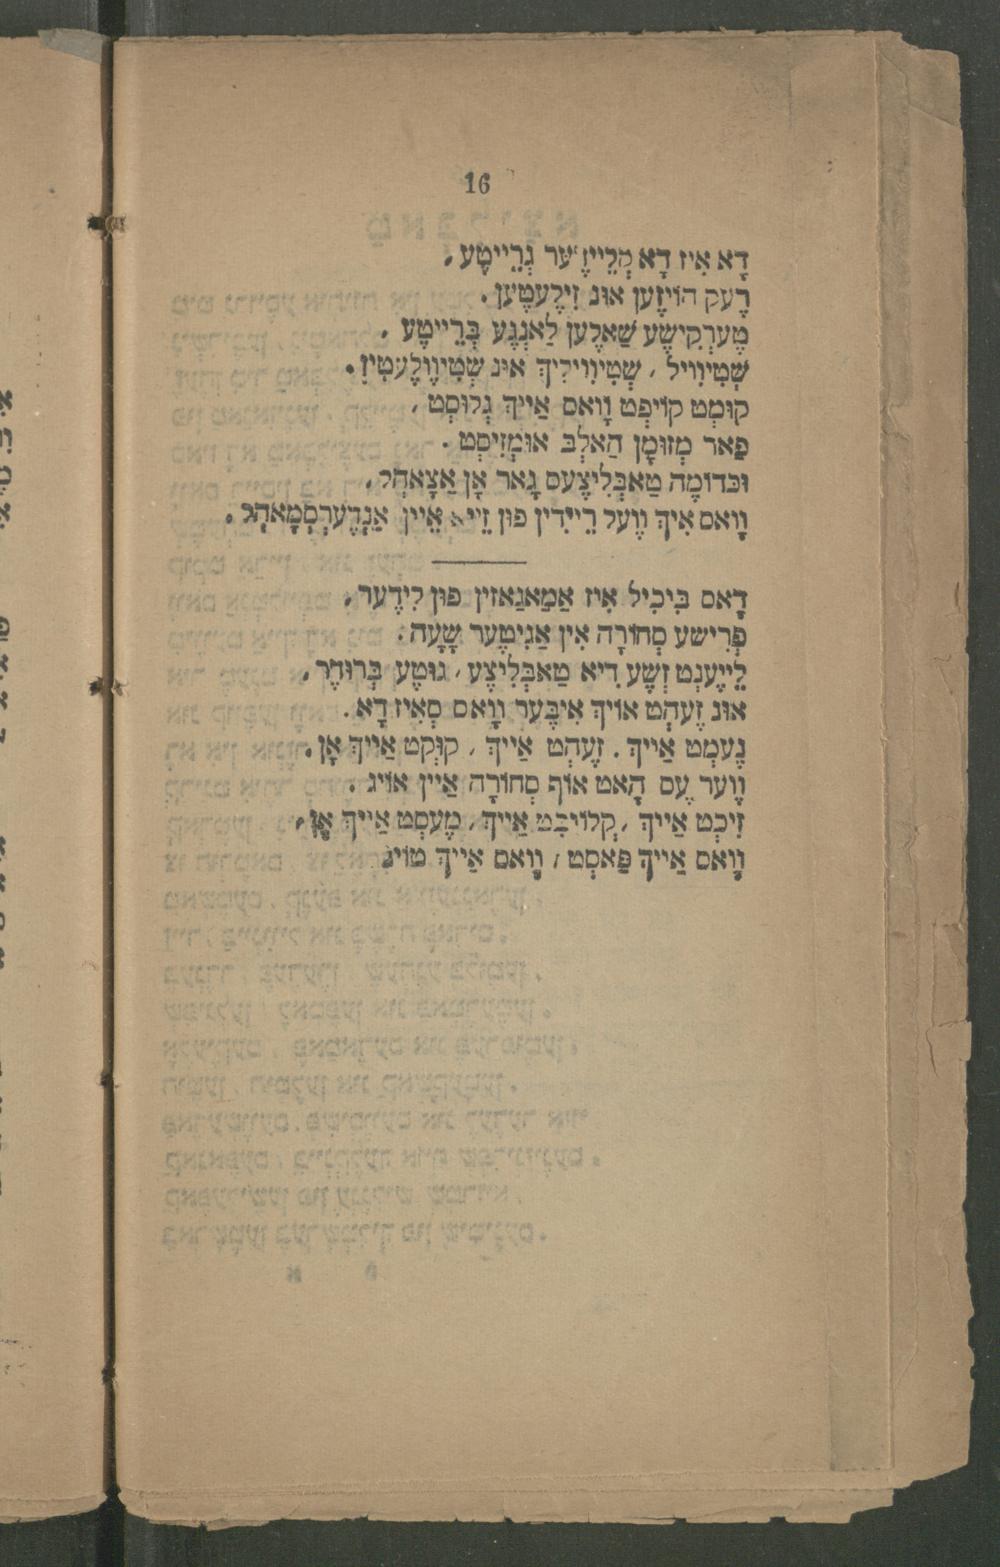 16
דָא אִיז דָא קְלֵייזֶער גְרֵייטֶע,
רֶעק הוֹיזֶען אוּנ זִילֶעטֶען.
טֶערְקִישֶע שַׁאלֶען לַאנְגֶע בְּרֵייטֶע,
שְׁטִיוִויל, שְׁטִיוִוילִיךְ אוּנ שְׁטִיוְולֶעטִיז.
קוּמְט קוֹיפְט וָואס אַייךְ גְלוּסְט,
פַאר מְזוּמָן הַאלְבּ אוּמְזִיסְט.
וּכְּדוֹמֶה טַאבְּלִיצֶעס גָאר אָן אַצָאהְל,
וָואס אִיךְ וֶועל רֵיידִין פוּן זֵייא אַיין אַנְדֶערְסְמָאהְל.
דָאס בִּיכִיל אִיז אַמַאגַאזִין פוּן לִידֶער,
פְרִישֶע סְחוֹרָה אִין אַגִיטֶער שָׁעָה:
לֵייעֶנְט זְשֶע דִיא טַאבְּלִיצֶע, גוּטֶע בְּרוּדֶר,
אוּנ זֶעהְט אוֹיךְ אִיבֶּער וָואס סְאִיז דָא.
נֶעמְט אַייךְ. זֶעהְט אַייךְ, קוּקְט אַייךְ אָן,
וֶוער עֶס הָאט אוֹף סְחוֹרָה אַיין אוֹיג.
זִיכְט אַייךְ, קְלוֹיבְּט אַייךְ, מֶעסְט אַייךְ אָן,
וָואס אַייךְ פַּאסְט, וָואס אַייךְ טוֹיג